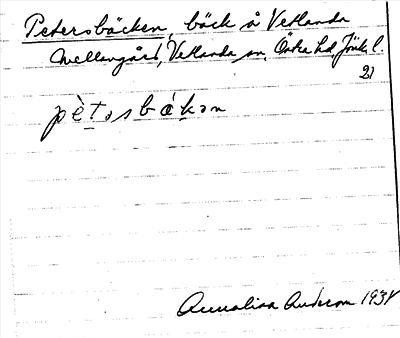 Petersbäcken, bäck å Vetlanda
Mellangård, Vetlanda sn, Östra hd, Jönk. l.
21
pètəsbákən
Annalisa Anderson 1934